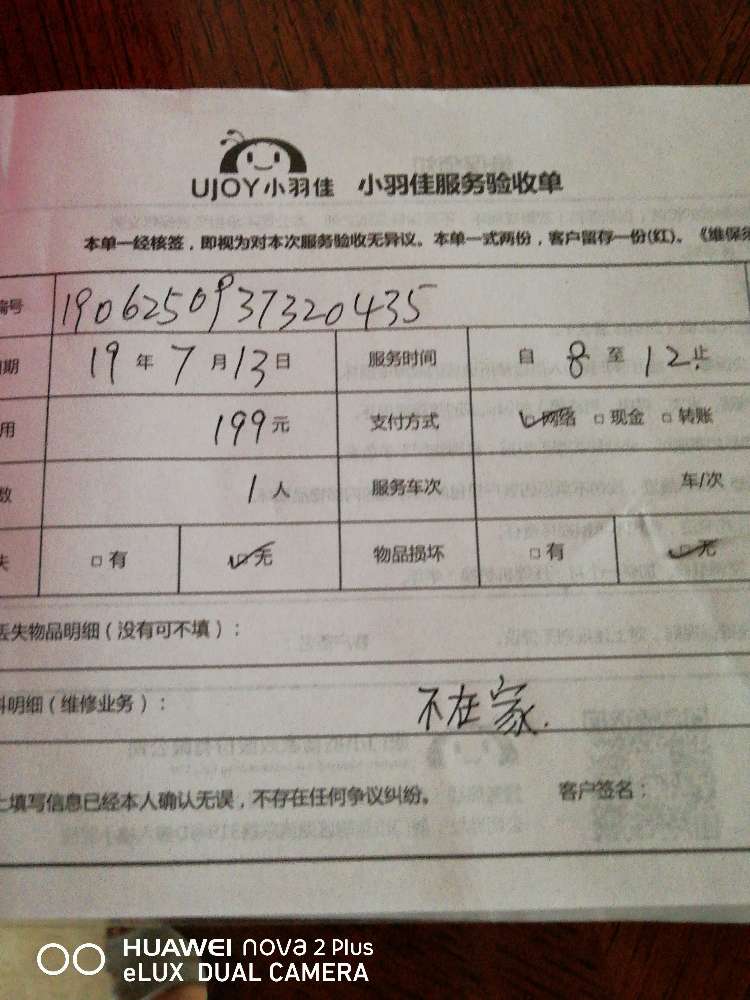 UJOY小羽佳 小羽佳服务验收单
本单一经核签，即视为对本次服务验收无异议。本单一式两份，客户留存一份(红)。《维保须
编号 1906250937320435
期 19 年 7 月 13 日 服务时间 自 8 至 12 止
用 199 元 支付方式 网络 现金 转账
数 1 人 服务车次 车/次
失 有 无 物品损坏 有 无
丢失物品明细（没有可不填）：
料明细（维修业务）： 不在家.
上填写信息已经本人确认无误，不存在任何争议纠纷。 客户签名：
HUAWEI nova 2 Plus
eLUX DUAL CAMERA